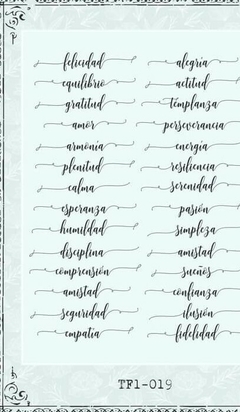 felicidad alegria
equilibrio actitud
gratitud templanza
amor perseverancia
armonia energia
plenitud resiliencia
calma serenidad
esperanza pasión
humildad simpleza
disciplina amistad
comprensión sueños
amistad confianza
seguridad ilusión
empatia fidelidad
TF1-019